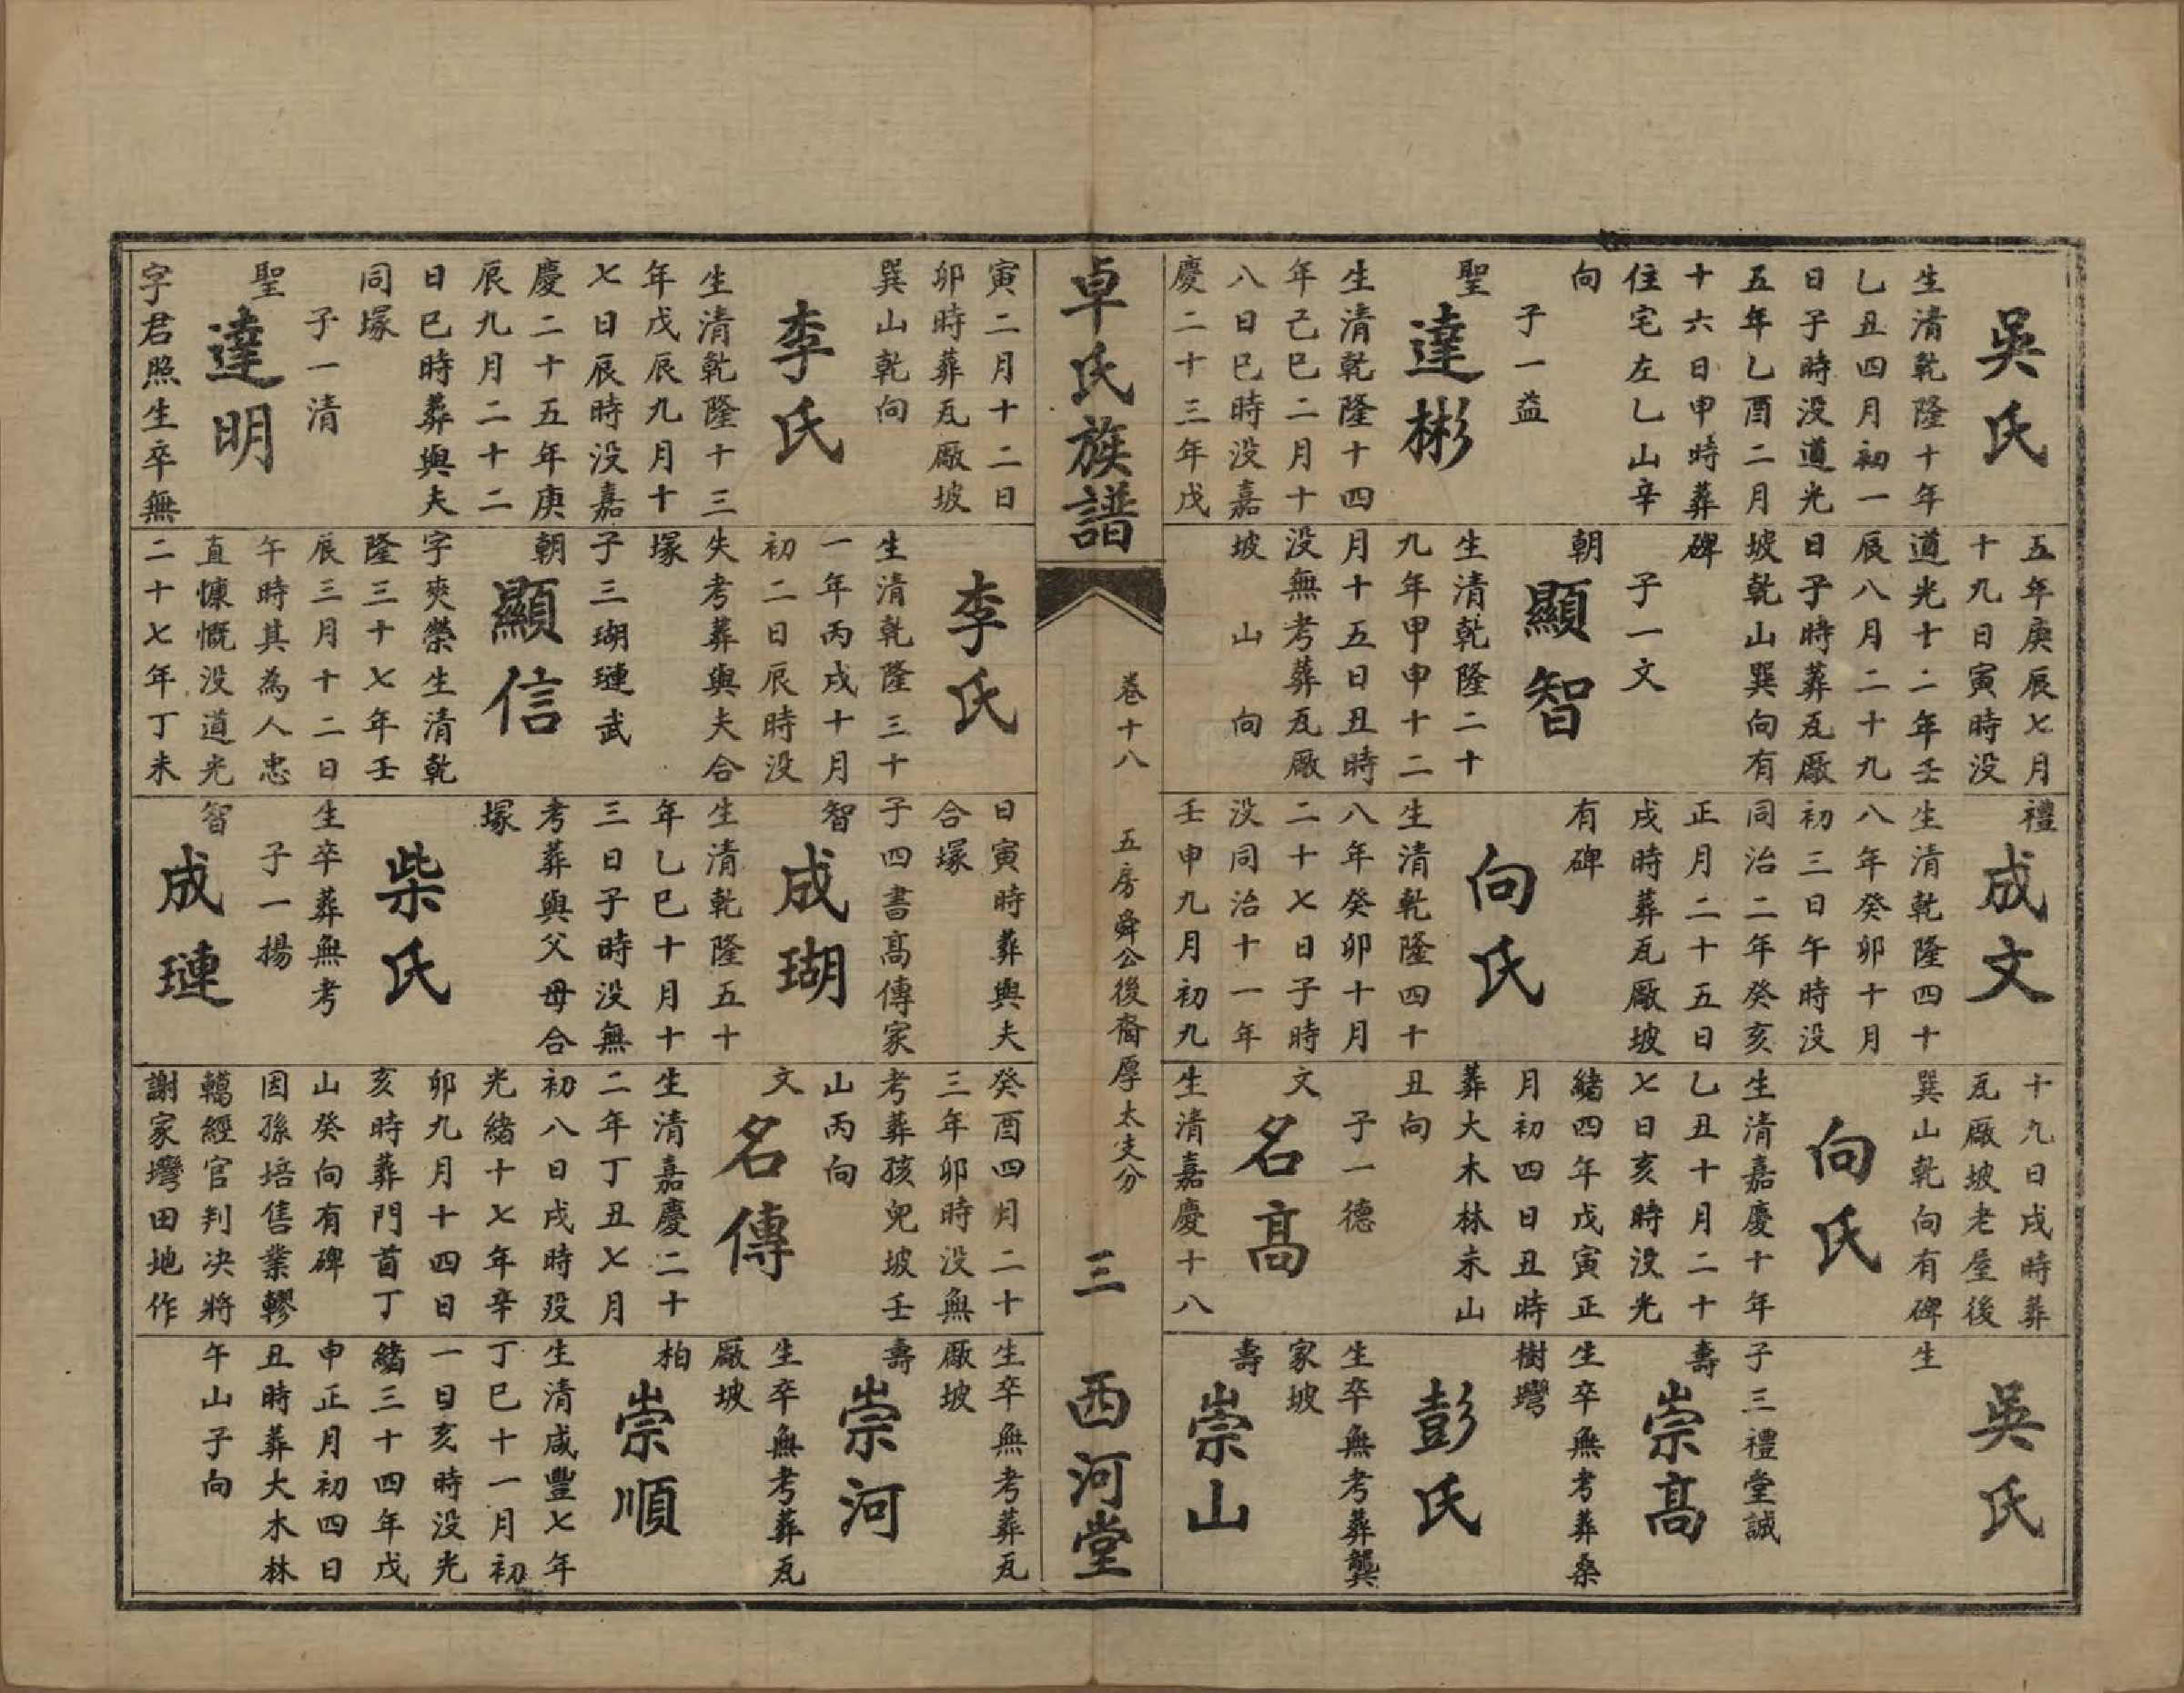 吳氏
生清乾隆十年
乙丑四月初一
日子時没道光
五年乙酉二月
十六日申時葬
住宅左乙山辛
向
子一益
聖
達彬
生清乾隆十四
年己巳二月十
八日巳時没嘉
慶二十三年戊
五年庚辰七月
十九日寅時没
道光十二年壬
辰八月二十九
日子時葬瓦廠
坡乾山巽向有
碑
子一文
朝
顯智
生清乾隆二十
九年甲申十二
月十五日丑時
没無考葬瓦廠
坡 山 向
禮
成文
生清乾隆四十
八年癸卯十月
初三日午時没
同治二年癸亥
正月二十五日
戌時葬瓦廠坡
有碑
向氏
生清乾隆四十
八年癸卯十月
二十七日子時
没同治十一年
壬申九月初九
十九日戌時葬
瓦廠坡老屋後
巽山乾向有碑
向氏
生清嘉慶十年
乙丑十月二十
七日亥時没光
緒四年戊寅正
月初四日丑時
葬大木林未山
丑向
子一德
文
名高
生清嘉慶十八
吳氏
生
子三禮堂誠
壽
崇高
生卒無考葬桑
樹灣
彭氏
生卒無考葬龔
家坡
壽
崇山
卓氏族譜
卷十八 五房舜公後裔厚太支分
三
西河堂
寅二月十二日
卯時葬瓦廠坡
巽山乾向
李氏
生清乾隆十三
年戊辰九月十
七日辰時没嘉
慶二十五年庚
辰九月二十二
日巳時葬與夫
同塚
子一清
聖
達明
字君照生卒無
李氏
生清乾隆三十
一年丙戌十月
初二日辰時没
失考葬與夫合
塚
子三瑚璉武
朝
顯信
字爽榮生清乾
隆三十七年壬
辰三月十二日
午時其為人忠
直慷慨没道光
二十七年丁未
日寅時葬與夫
合塚
子四書高傳家
智
成瑚
生清乾隆五十
年乙巳十月十
三日子時没無
考葬與父母合
塚
柴氏
生卒葬無考
子一揚
智
成璉
癸酉四月二十
三年卯時没無
考葬孩兒坡壬
山丙向
文
名傳
生清嘉慶二十
二年丁丑七月
初八日戌時没
光緒十七年辛
卯九月十四日
亥時葬門首丁
山癸向有碑
因孫培售業轇
轕經官判决將
謝家灣田地作
生卒無考葬瓦
廠坡
壽
崇河
生卒無考葬瓦
廠坡
柏
崇順
生清咸豐七年
丁巳十一月初
一日亥時没光
緒三十四年戊
申正月初四日
丑時葬大木林
午山子向